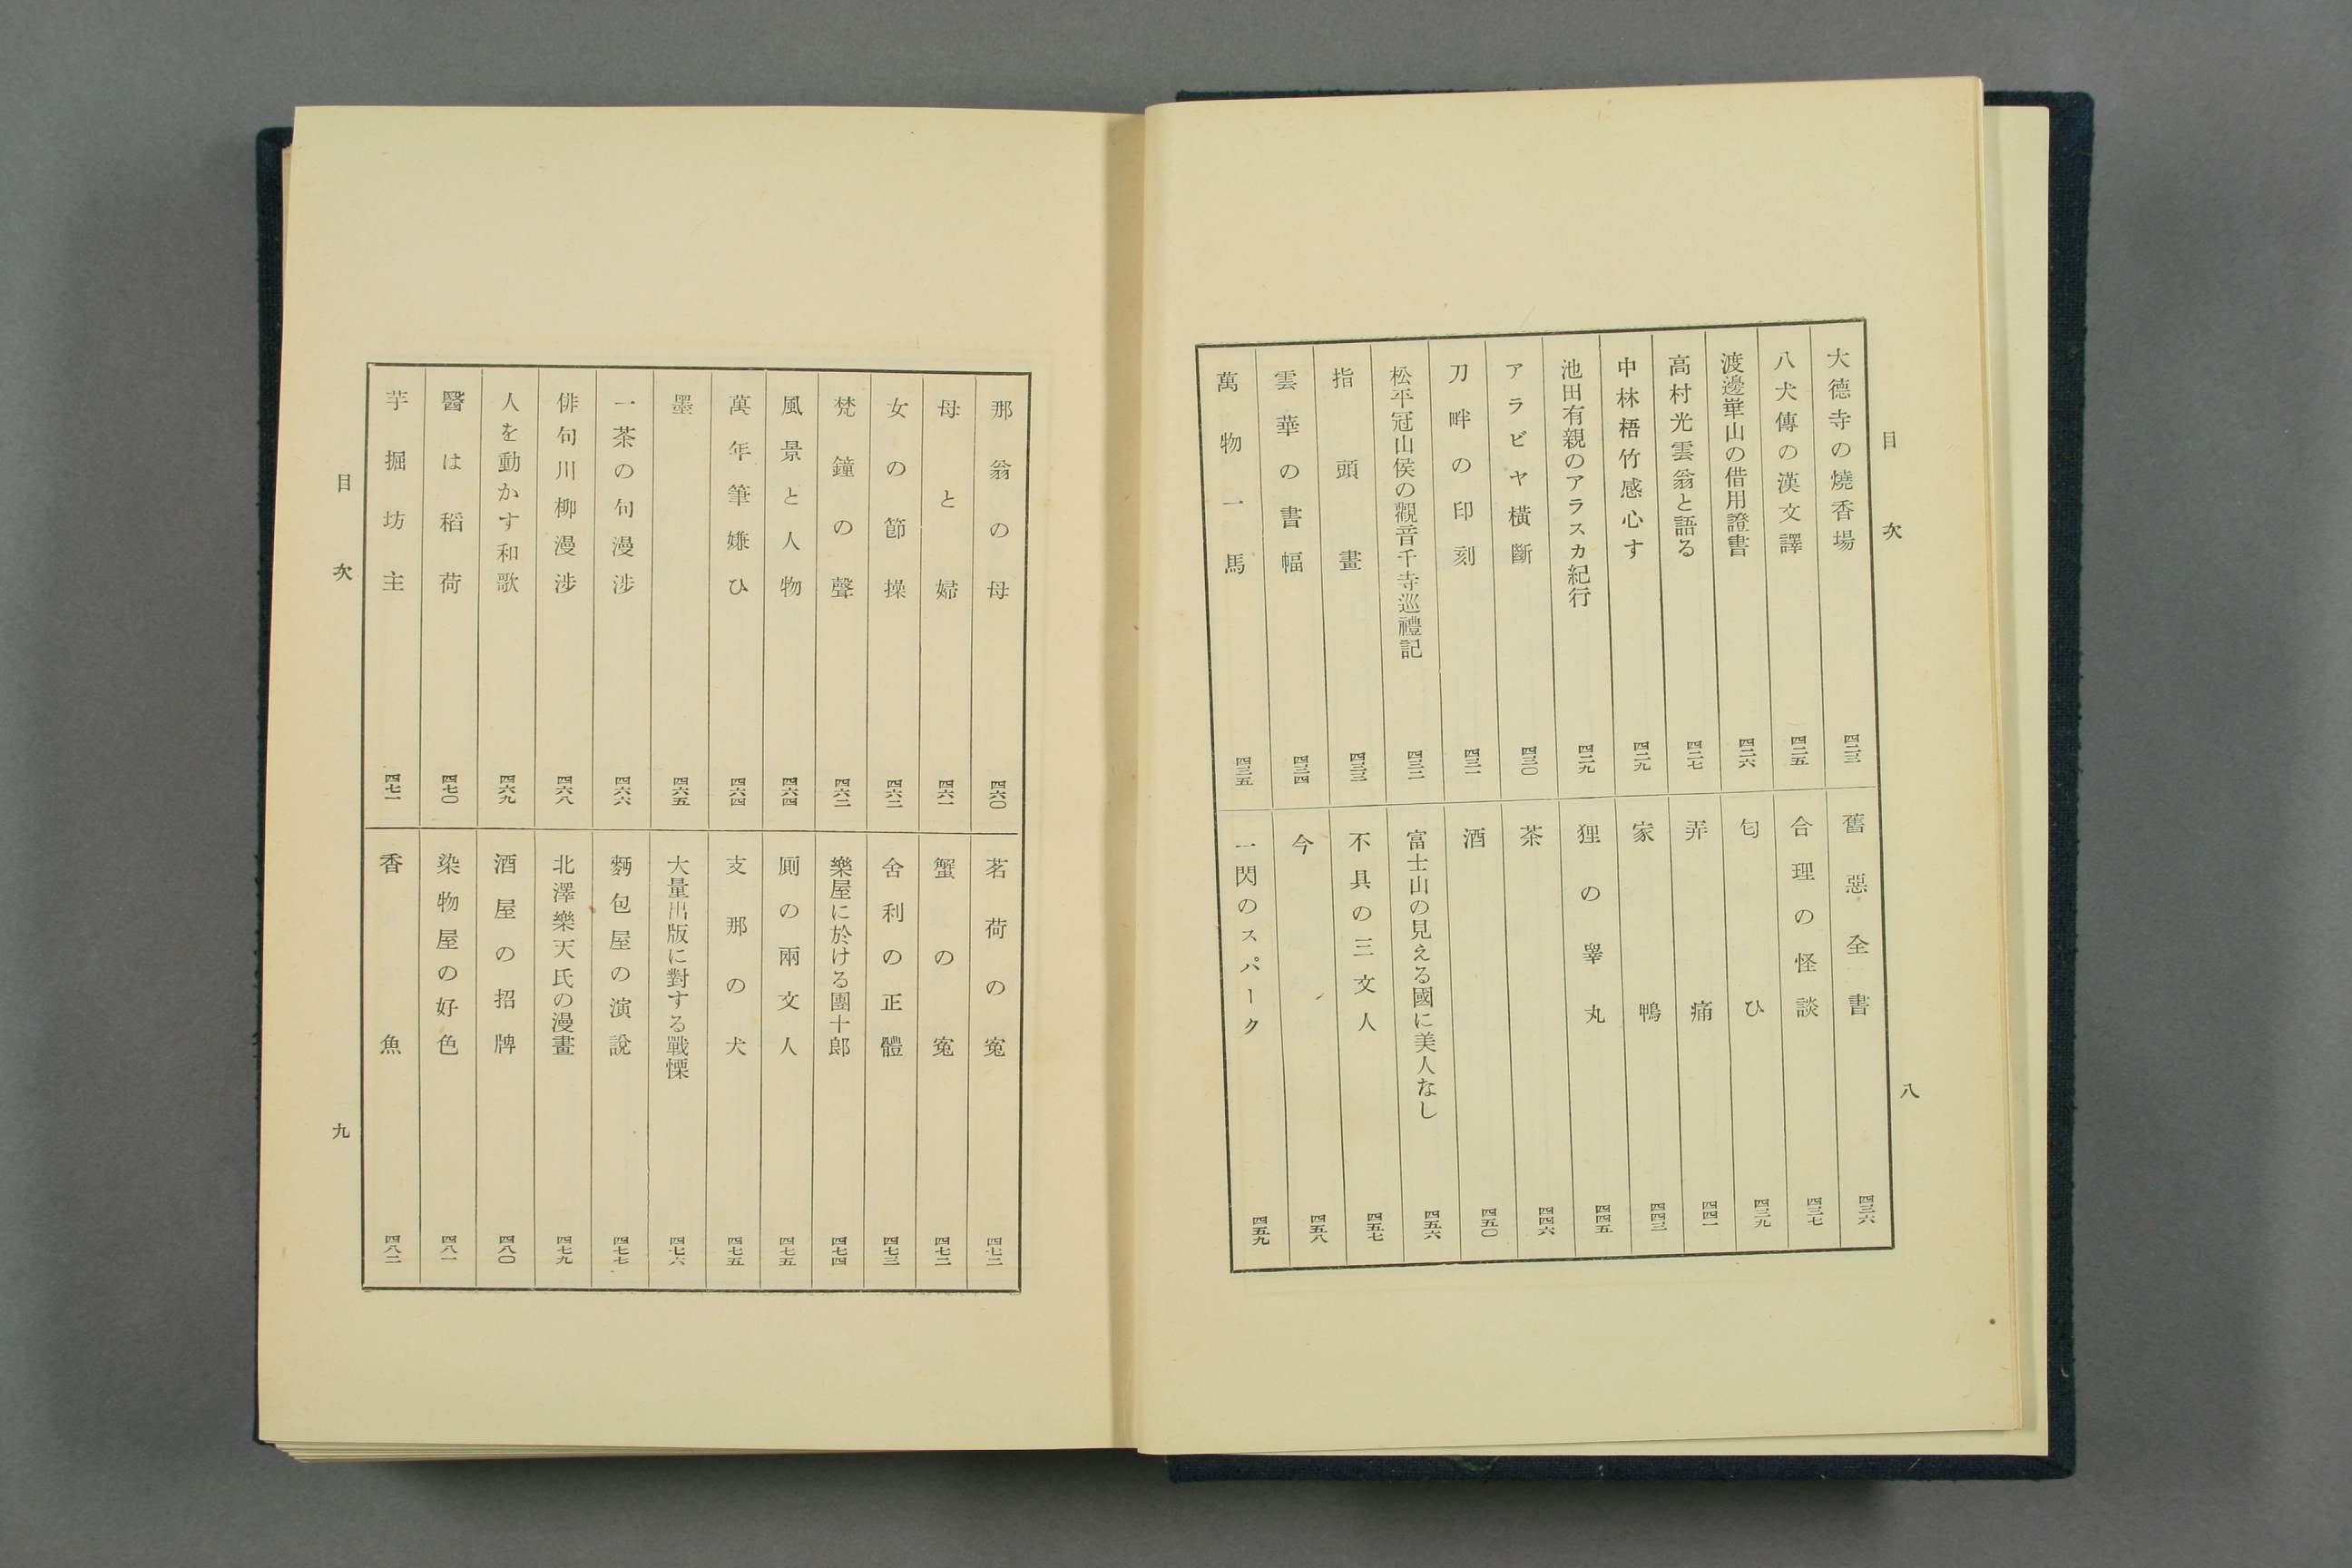 目次
八
大德寺の燒香場 四二三
八犬傳の漢文譯 四二五
渡邊崋山の借用證書 四二六
高村光雲翁と語る 四二七
中林梧竹感心す 四二九
池田有親のアラスカ紀行 四二九
アラビヤ橫斷 四三〇
刀畔の印刻 四三一
松平冠山侯の觀音千寺巡禮記 四三二
指頭畫 四三三
雲華の書幅 四三四
萬物一馬 四三五
舊惡全書 四三六
合理の怪談 四三七
匂ひ 四三九
弄痛 四四一
家鴨 四四三
狸の睾丸 四四五
茶 四四六
酒 四五〇
富士山の見える國に美人なし 四五六
不具の三文人 四五七
今 四五八
一閃のスパーク 四五九
那翁の母 四六〇
母と婦 四六一
女の節操 四六二
梵鐘の聲 四六二
風景と人物 四六四
萬年筆嫌ひ 四六四
墨 四六五
一茶の句漫涉 四六六
俳句川柳漫涉 四六八
人を動かす和歌 四六九
醫は稻荷 四七〇
芋掘坊主 四七一
茗荷の寃 四七二
蟹の寃 四七二
舍利の正體 四七三
樂屋に於ける團十郎 四七四
厠の兩文人 四七五
支那の犬 四七五
大量出版に對する戰慄 四七六
麪包屋の演說 四七七
北澤樂天氏の漫畫 四七九
酒屋の招牌 四八〇
染物屋の好色 四八一
香魚 四八二
目次
九